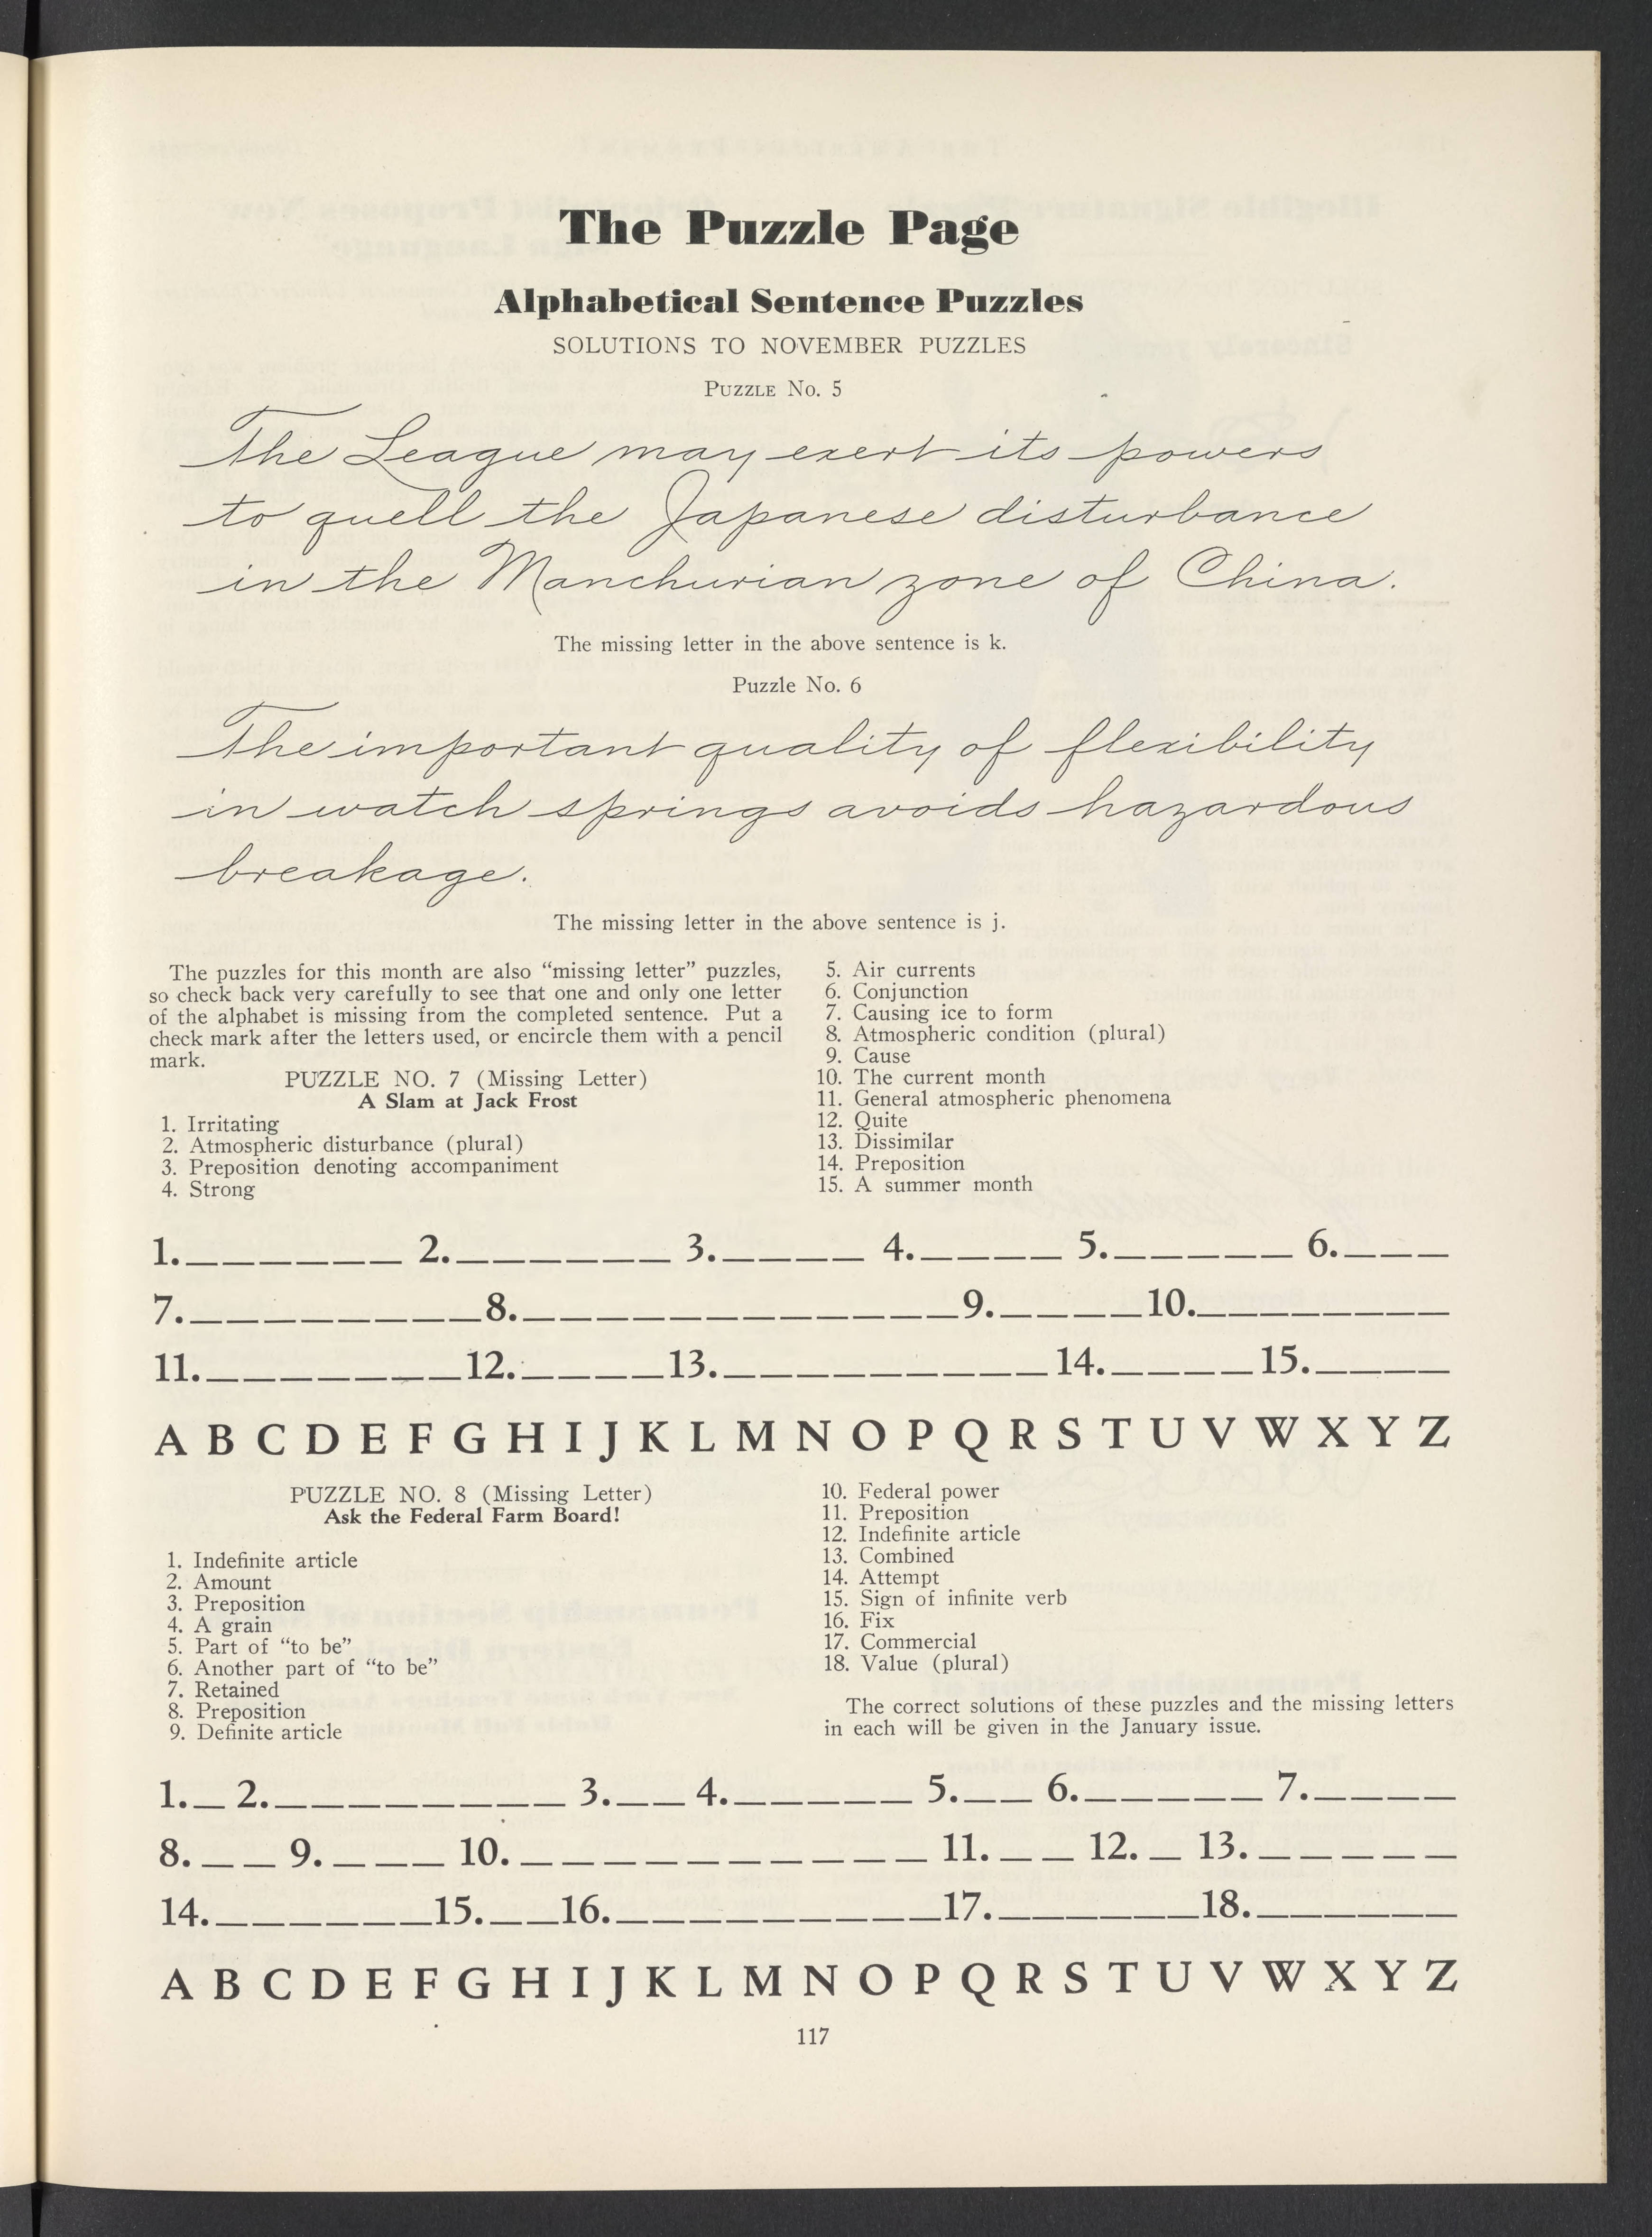 The Puzzle Page
Alphabetical Sentence Puzzles
SOLUTIONS TO NOVEMBER PUZZLES
PUZZLE NO. 5
The League may exert its powers
to quell the Japanese disturbance
in the Manchurian zone of China.
The missing letter in the above sentence is k.
Puzzle No. 6
The important quality of flexibility
in watch springs avoids hazardous
breakage.
The missing letter in the above sentence is j.
The puzzles for this month are also “missing letter” puzzles,
so check back very carefully to see that one and only one letter
of the alphabet is missing from the completed sentence. Put a
check mark after the letters used, or encircle them with a pencil
mark.
PUZZLE NO. 7 (Missing Letter)
A Slam at Jack Frost
1. Irritating
2. Atmospheric disturbance (plural)
3. Preposition denoting accompaniment
4. Strong
5. Air currents
6. Conjunction
7. Causing ice to form
8. Atmospheric condition (plural)
9. Cause
10. The current month
11. General atmospheric phenomena
12. Quite
13. Dissimilar
14. Preposition
15. A summer month
1. _ _ _ _ _ _ 2. _ _ _ _ _ _ 3. _ _ _ _ 4. _ _ _ _ 5. _ _ _ _ _ 6. _ _ _
7. _ _ _ _ _ _ _ _ 8. _ _ _ _ _ _ _ _ _ _ _ _ 9. _ _ _ _ 10. _ _ _ _ _ _ _ _
11. _ _ _ _ _ _ _ 12. _ _ _ _ 13. _ _ _ _ _ _ _ _ _ 14. _ _ _ _ 15. _ _ _ _
A B C D E F G H I J K L M N O P Q R S T U V W X Y Z
PUZZLE NO. 8 (Missing Letter)
Ask the Federal Farm Board!
1. Indefinite article
2. Amount
3. Preposition
4. A grain
5. Part of “to be”
6. Another part of “to be”
7. Retained
8. Preposition
9. Definite article
10. Federal power
11. Preposition
12. Indefinite article
13. Combined
14. Attempt
15. Sign of infinite verb
16. Fix
17. Commercial
18. Value (plural)
The correct solutions of these puzzles and the missing letters
in each will be given in the January issue.
1. _ 2. _ _ _ _ _ _ _ _ 3. _ _ 4. _ _ _ _ _ 5. _ _ _ 6. _ _ _ _ _ 7. _ _ _ _
8. _ _ 9. _ _ _ 10. _ _ _ _ _ _ _ _ _ _ 11. _ _ 12. _ 13. _ _ _ _ _
14. _ _ _ _ _ _ 15. _ _ 16. _ _ _ _ _ _ _ _ _ 17. _ _ _ _ _ 18. _ _ _ _ _ _
A B C D E F G H I J K L M N O P Q R S T U V W X Y Z
117